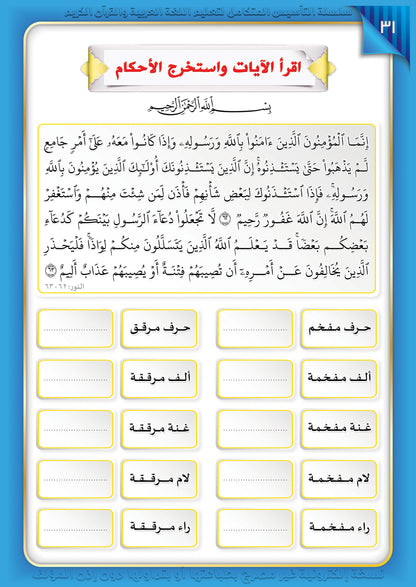 سلسلة التأسيس المتكامل لتعليم اللغة العربية والقرآن الكريم
٣١
اقرأ الآيات واستخرج الأحكام
بِسْمِ اللَّهِ الرَّحْمَنِ الرَّحِيمِ
إِنَّمَا ٱلْمُؤْمِنُونَ ٱلَّذِينَ ءَامَنُوا۟ بِٱللَّهِ وَرَسُولِهِۦ وَإِذَا كَانُوا۟ مَعَهُۥ عَلَىٰٓ أَمْرٍ جَامِعٍ
لَّمْ يَذْهَبُوا۟ حَتَّىٰ يَسْتَـْٔذِنُوهُ ۚ إِنَّ ٱلَّذِينَ يَسْتَـْٔذِنُونَكَ أُو۟لَـٰٓئِكَ ٱلَّذِينَ يُؤْمِنُونَ بِٱللَّهِ
وَرَسُولِهِۦ ۚ فَإِذَا ٱسْتَـْٔذَنُوكَ لِبَعْضِ شَأْنِهِمْ فَأْذَن لِّمَن شِئْتَ مِنْهُمْ وَٱسْتَغْفِرْ
لَهُمُ ٱللَّهَ ۚ إِنَّ ٱللَّهَ غَفُورٌ رَّحِيمٌ ٦٢ لَّا تَجْعَلُوا۟ دُعَآءَ ٱلرَّسُولِ بَيْنَكُمْ كَدُعَآءِ
بَعْضِكُم بَعْضًا ۚ قَدْ يَعْلَمُ ٱللَّهُ ٱلَّذِينَ يَتَسَلَّلُونَ مِنكُمْ لِوَاذًا ۚ فَلْيَحْذَرِ
ٱلَّذِينَ يُخَالِفُونَ عَنْ أَمْرِهِۦٓ أَن تُصِيبَهُمْ فِتْنَةٌ أَوْ يُصِيبَهُمْ عَذَابٌ أَلِيمٌ ٦٣
النور: ٦٢-٦٣
حرف مفخم .......... حرف مرقق ..........
ألف مفخمة .......... ألف مرققة ..........
غنة مفخمة .......... غنة مرققة ..........
لام مفخمة .......... لام مرققة ..........
راء مفخمة .......... راء مرققة ..........
نسخة إلكترونية غير مصرح بطباعتها أو بتداولها دون إذن المؤلف